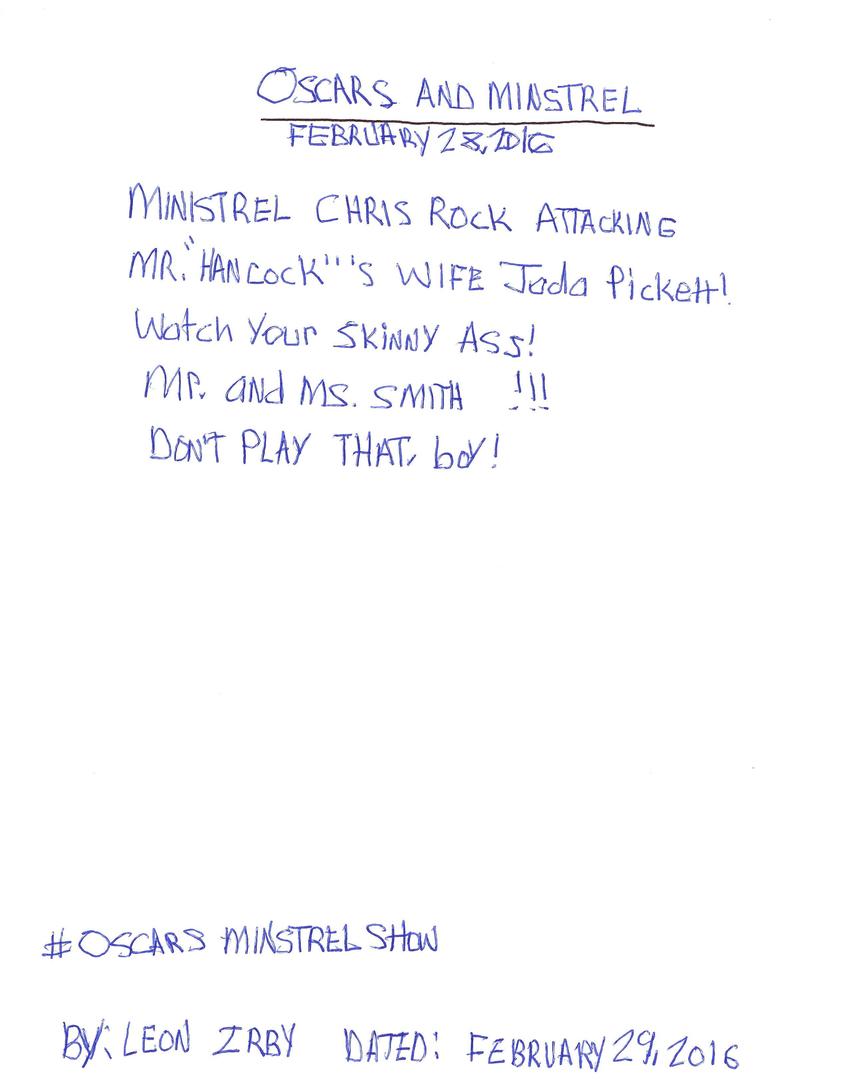 OSCARS AND MINSTREL
FEBRUARY 28, 2016
MINISTREL CHRIS ROCK ATTACKING
MR. "HANCOCK"'S WIFE Jada Pickett!
Watch Your SKINNY ASS!
MR. and MS. SMITH !!!
DON'T PLAY THAT, boy!
#OSCARS MINSTREL SHOW
BY: LEON IRBY DATED: FEBRUARY 29, 2016